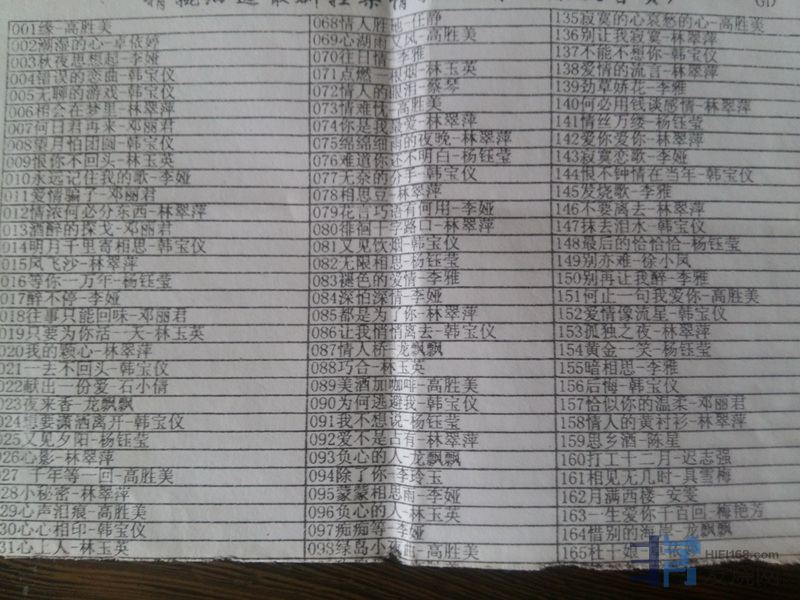 001缘-高胜美
002潮湿的心-卓依婷
003秋夜思想起-李娅
004错误的恋曲-韩宝仪
005无聊的游戏-韩宝仪
006相会在梦里-林翠萍
007何日君再来-邓丽君
008望月怕团圆-韩宝仪
009恨你不回头-林玉英
010永远记住我的歌-李娅
011爱情骗了-邓丽君
012情浓何必分东西-林翠萍
013酒醉的探戈-邓丽君
014明月千里寄相思-韩宝仪
015风飞沙-林翠萍
016等你一万年-杨钰莹
017醉不停-李娅
018往事只能回味-邓丽君
019只要为你活一天-林玉英
020我的颖心-林翠萍
021一去不回头-韩宝仪
022献出一份爱 石小倩
023夜来香-龙飘飘
024想要潇洒离开-韩宝仪
025又见夕阳-杨钰莹
026心影-林翠萍
027 千年等一回-高胜美
28小秘密-林翠萍
29心声泪痕-高胜美
30心心相印-韩宝仪
31心上人-林玉英
068情人 任静
069心湖雨又风-高胜美
070往日情 雅
071点燃一根烟-林玉英
072情人的眼泪-蔡琴
073情难 高胜美
074你是我最爱-林翠萍
075绵绵细雨的夜晚-林翠萍
076难道你还不明白-杨钰莹
077无奈的分手-韩宝仪
078相思 林翠萍
079花言巧语有何用-李娅
080徘徊十字路口-林翠萍
081又见饮烟-韩宝仪
082无限相思-杨钰莹
083褪色的爱情-李雅
084深怕深情-李娅
085都是为了你-林翠萍
086让我悄悄离去-韩宝仪
087情人桥-龙飘飘
088巧合-林玉英
089美酒加咖啡-高胜美
090为何逃避我-韩宝仪
091我不想说-杨钰莹
092爱不是占有-林翠萍
093负心的人-龙飘飘
094除了你-李玲玉
095蒙蒙相思雨-李娅
096负心的人-林玉英
097痴痴等-李娅
098绿岛小夜曲-高胜美
135寂寞的心哀愁的心-高胜美
136别让我寂寞-林翠萍
137不能不想你-韩宝仪
138爱情的流言-林翠萍
139劲草娇花-李雅
140何必用钱谈感情-林翠萍
141情丝万缕-杨钰莹
142爱你爱你-林翠萍
143寂寞恋歌-李娅
144恨不钟情在当年-韩宝仪
145发烧歌-李雅
146不要离去-林翠萍
147抹去泪水-韩宝仪
148最后的恰恰恰-杨钰莹
149别亦难-徐小凤
150别再让我醉-李雅
151何止一句我爱你-高胜美
152爱情像流星-韩宝仪
153孤独之夜-林翠萍
154黄金一笑-杨钰莹
155暗相思-李雅
156后悔-韩宝仪
157恰似你的温柔-邓丽君
158情人的黄衬衫-林翠萍
159思乡酒-陈星
160打工十二月-迟志强
161相见无几时-具雪梅
162月满西楼-安雯
163一生爱你千百回-梅艳芳
164惜别的海岸-龙飘飘
165杜十娘
HIFI168.com
发烧网